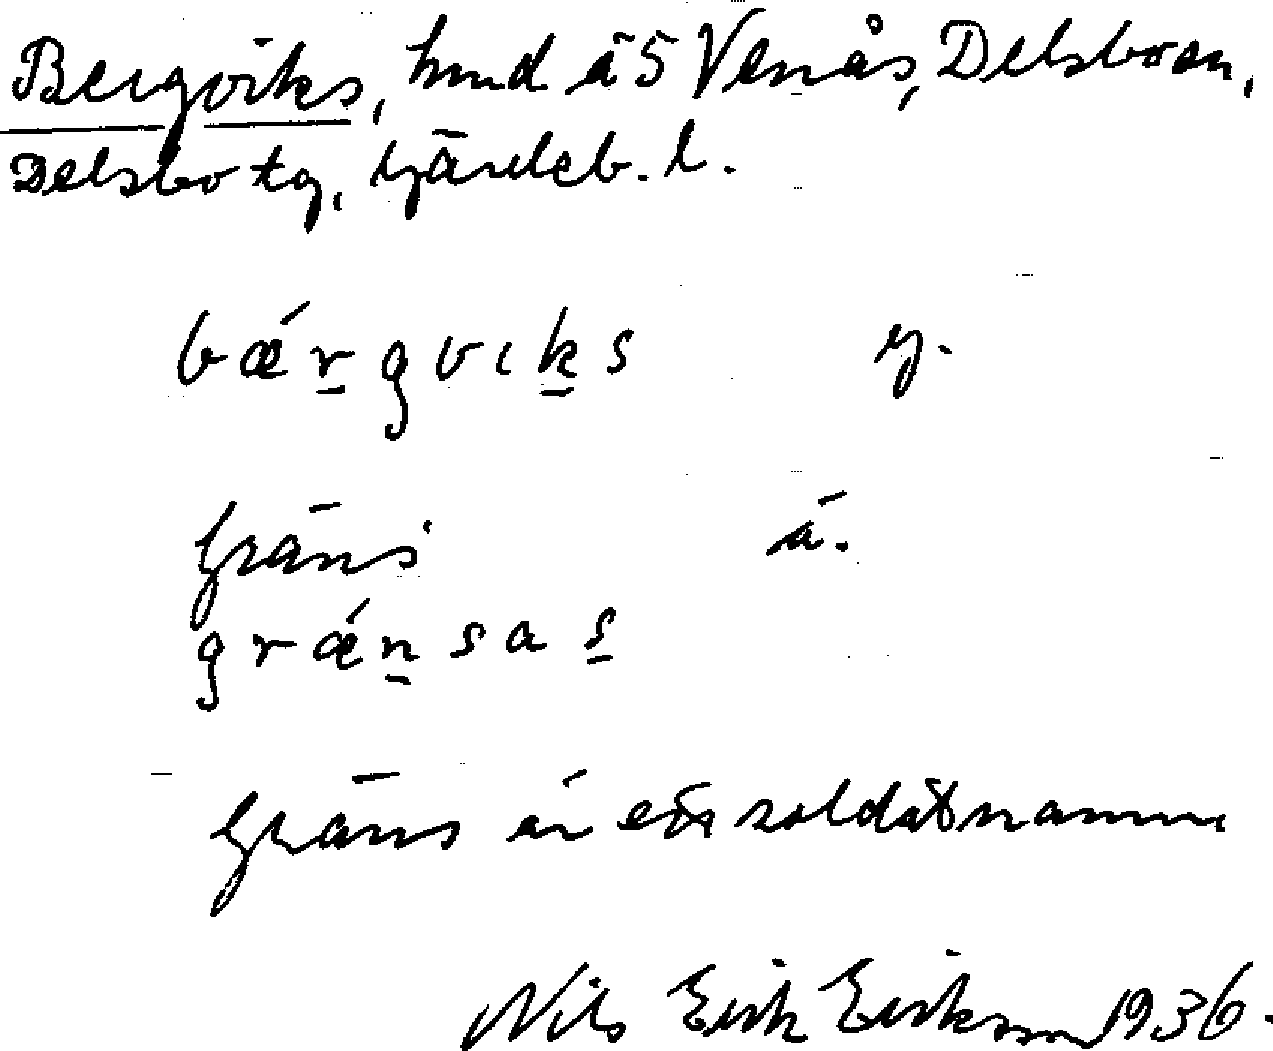 Bergviks, hmd å 5 Venås, Delsboån,
Delsbo tg, Gävleb. l.
bǽrgviks y.
Gräns ä.
grǽnsas
Gräns är ett soldatnamn
Nils Erik Eriksson 1936.